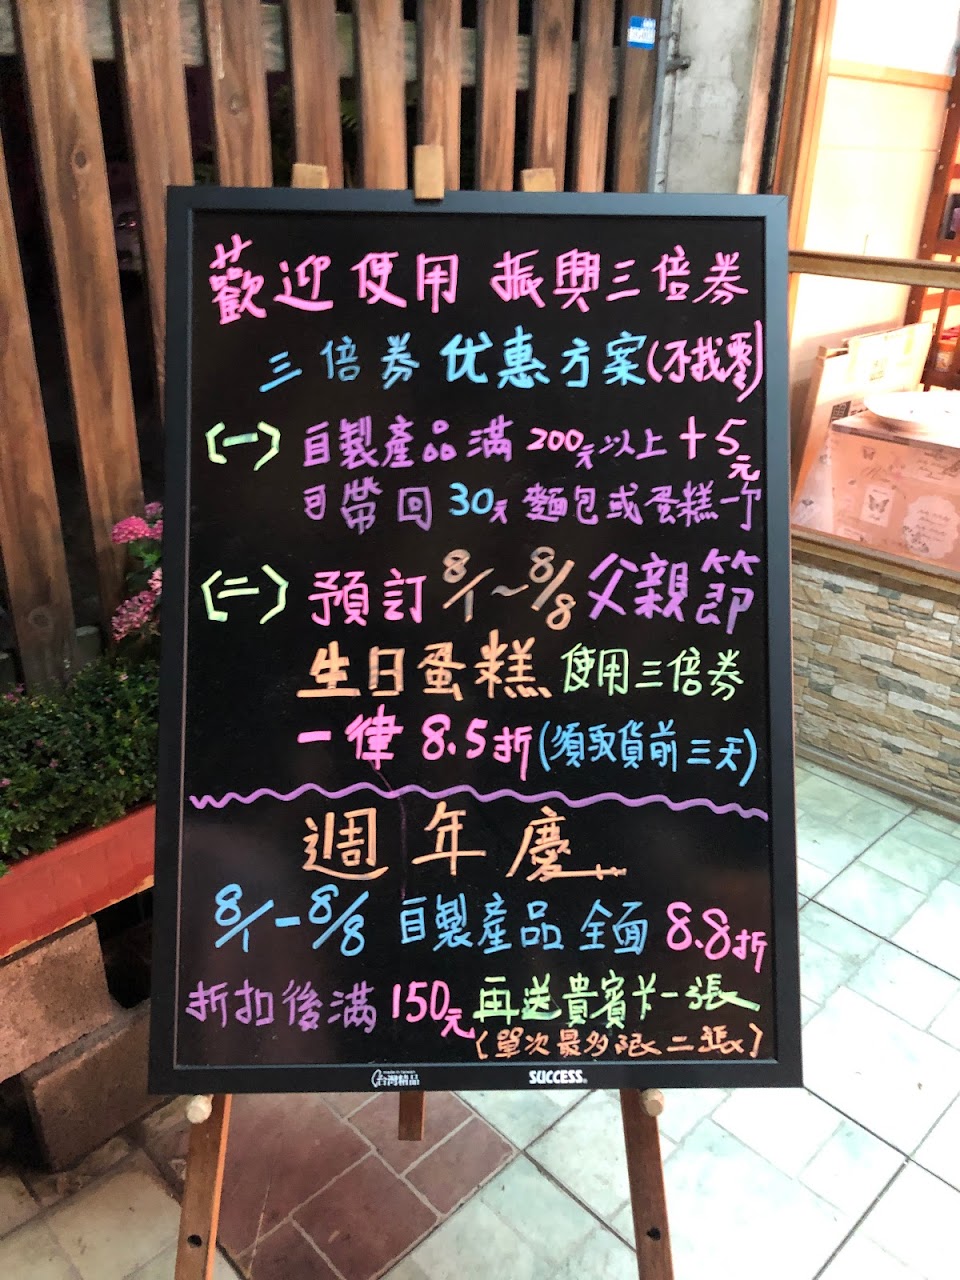 歡迎使用 振興三倍券
三倍券 优惠方案(不找零)
(一) 自製產品滿 200元以上 +5元
可帶回 30元 麵包或蛋糕一个
(二) 預訂 8/1~8/8 父親節
生日蛋糕 使用三倍券
一律 8.5折(須取貨前三天)
週年慶
8/1-8/8 自製產品 全面 8.8折
折扣後滿 150元 再送貴賓卡一張
(單次最多限二張)
台灣精品 SUCCESS